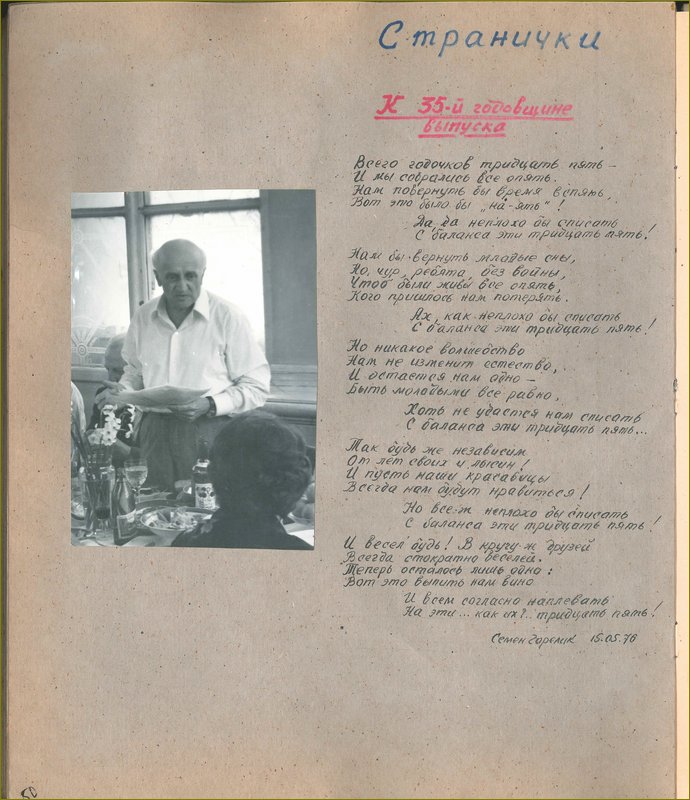 Странички
К 35-й годовщине
выпуска
Всего годочков тридцать пять –
И мы собрались все опять.
Нам повернуть бы время вспять,
Вот это было бы „на-ять"!
Да, да неплохо бы списать
С баланса эти тридцать пять!
Нам бы вернуть младые сны,
Но, чур, ребята, без войны,
Чтоб были живы все опять,
Кого пришлось нам потерять.
Ах, как неплохо бы списать
С баланса эти тридцать пять!
Но никакое волшебство
Нам не изменит естество,
И остается нам одно –
Быть молодыми все равно,
Хоть не удастся нам списать
С баланса эти тридцать пять...
Так будь же независим
От лет своих и лысин!
И пусть наши красавицы
Всегда нам будут нравиться!
Но все-ж неплохо бы списать
С баланса эти тридцать пять!
И весел будь! В кругу-ж друзей
Всегда стократно веселей.
Теперь осталось лишь одно:
Вот это выпить нам вино
И всем согласно наплевать
На эти... как их?.. тридцать пять!
Семен Горелик 15.05.76
50